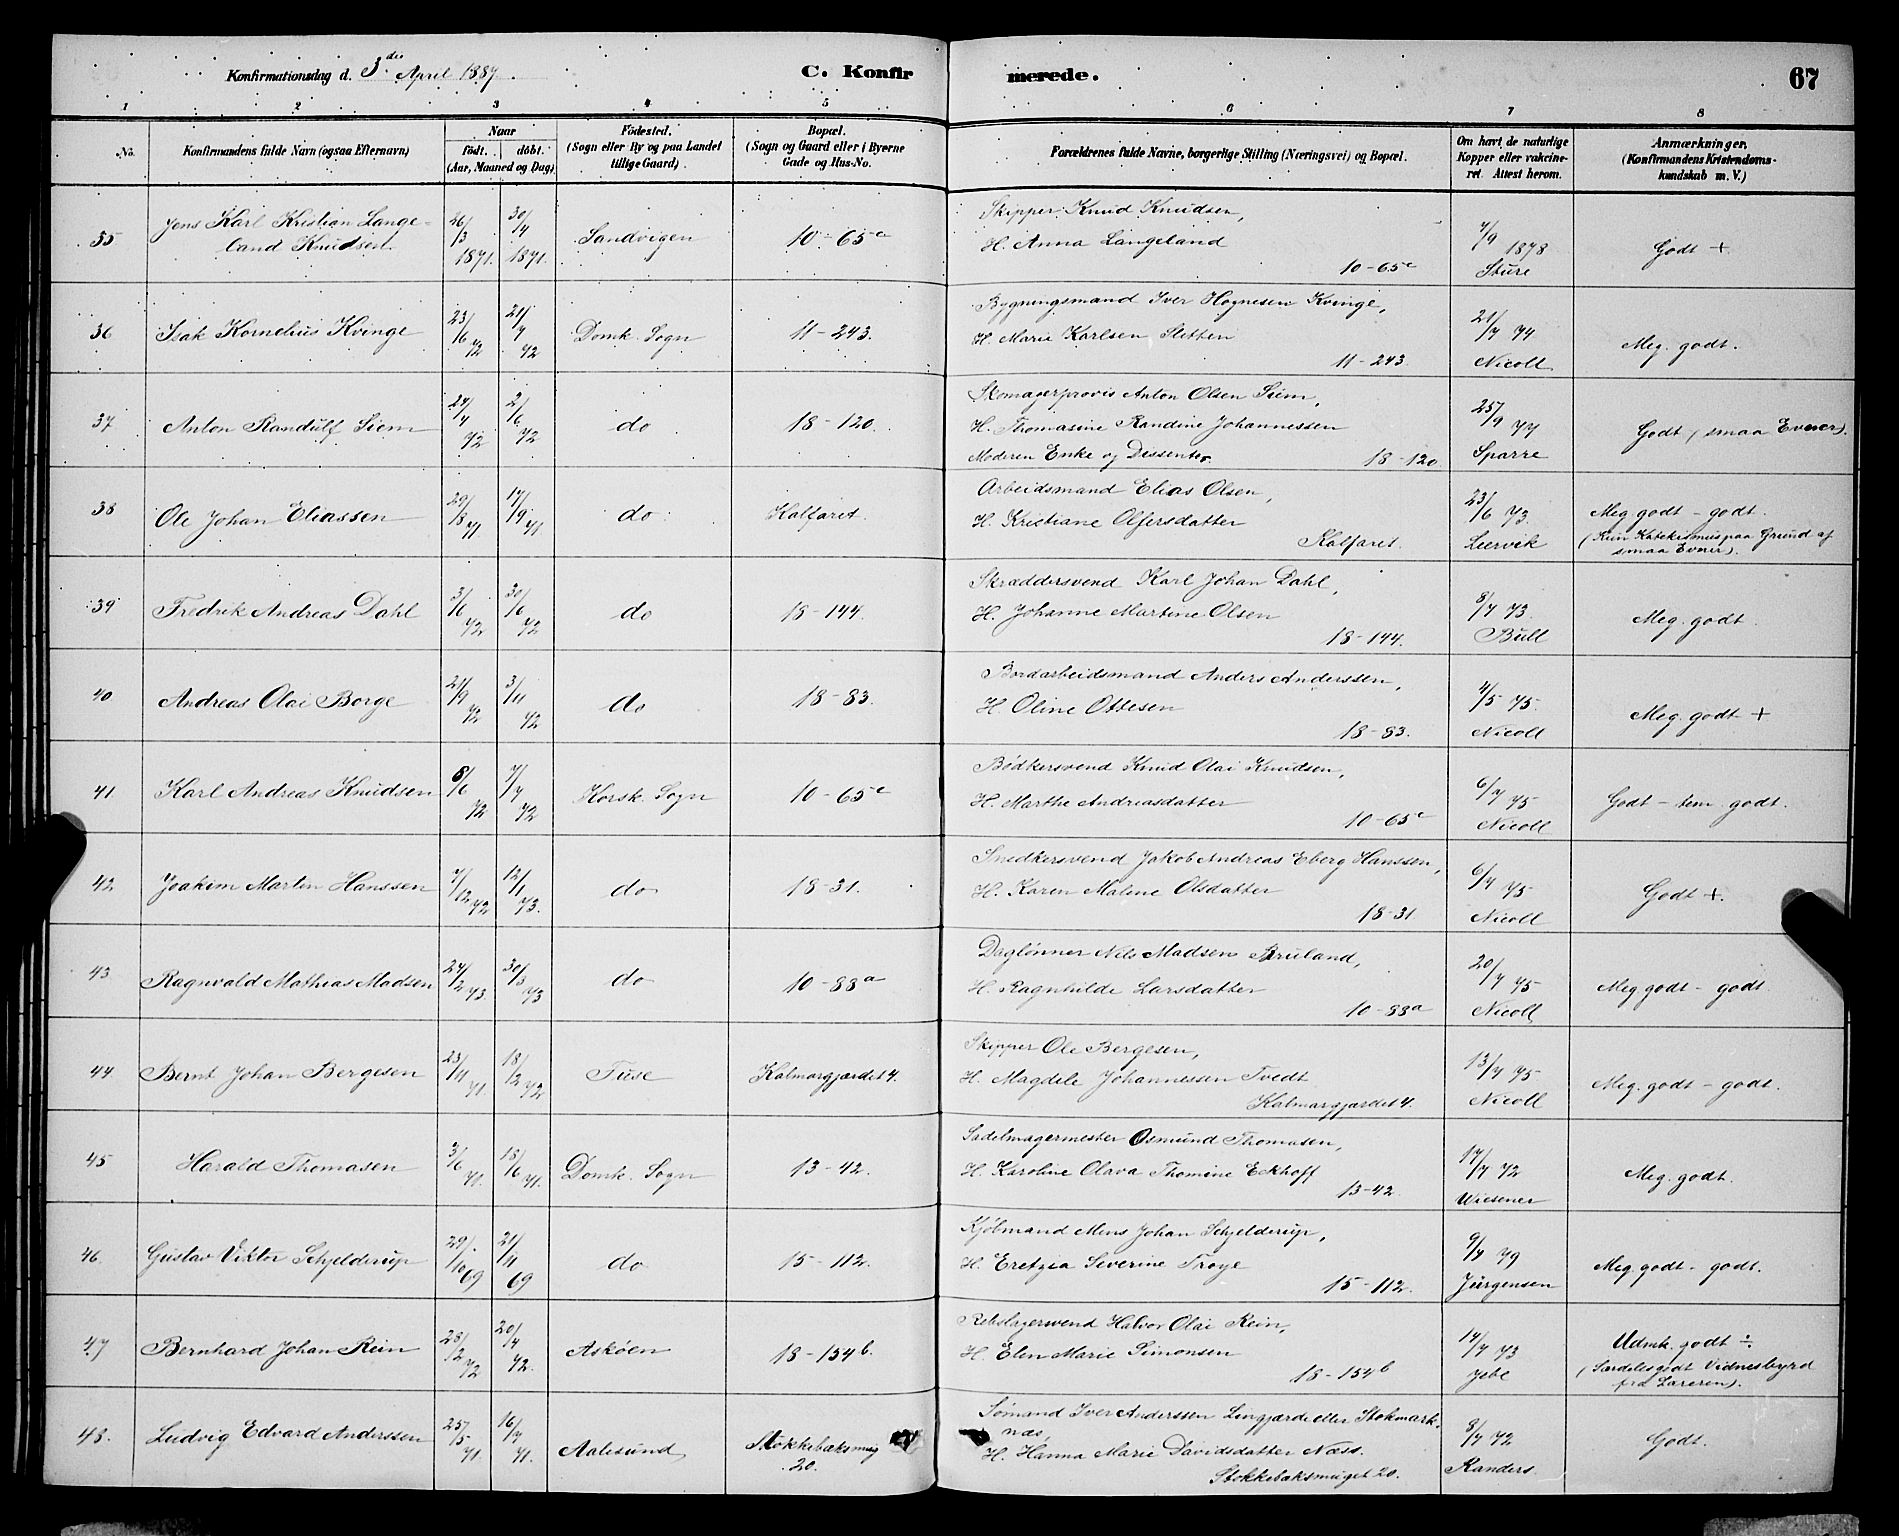 Konfirmationsdag d. 3die April 1887. C. Konfirmerede. 67
1 2 3 4 5 6 7 8
No. Konfirmandens fulde Navn (ogsaa Efternavn) Naar födt. döbt. (Aar, Maaned og Dag) Födested. (Sogn eller By og paa Landet tillige Gaard). Bopæl. (Sogn og Gaard eller i Byerne Gade og Hus-No. Forældrenes fulde Navne, borgerlige Stilling (Næringsvei) og Bopæl. Om havt de naturlige Kopper eller vakcineret. Attest herom. Anmærkninger. (Konfirmandens Kristendomskundskab m. V.)
35 Jens Karl Kristian Langeland Knudsen 26/3 1871. 30/4 1871. Sandvigen 10-65c Skipper Knud Knudsen,
H. Anna Langeland
10-65c 4/9 1878 Sture Godt +
36 Isak Kornelius Kvinge 23/6 72 21/7 72 Domk. Sogn 11-243. Bygningsmand Iver Hognesen Kvinge,
H. Marie Karlsen Sletten
11-243. 21/7 74 Nicoll Meg. godt.
37 Anton Randulf Siem 24/4 72 2/6 72 do 18-120. Skomagerprovis Anton Olsen Siem,
H. Thomasine Randine Johannessen
Moderen Enke og Dissenter. 18-120. 25/9 77 Sparre Godt (smaa Evner).
38 Ole Johan Eliassen 29/8 71 17/9 71 do Kalfaret. Arbeidsmand Elias Olsen,
H. Kristiane Olfersdatter
Kalfaret. 23/6 73. Leervik Meg godt - godt.
(Kun Katekismus paa Grund af
smaa Evner).
39 Fredrik Andreas Dahl 3/6 72 30/6 72 do 18-144. Skræddersvend Karl Johan Dahl,
H. Johanne Martine Olsen
18-144. 8/7 73. Bull Meg. godt.
40 Andreas Olai Borge 21/9 72 3/11 72 do 18-83. Bordarbeidsmand Anders Anderssen,
H. Oline Ottesen
18-83. 4/5 75. Nicoll Meg. godt +
41 Karl Andreas Knudsen 8/6 72 7/7 72 Korsk. Sogn 10-65c Bödkersvend Knud Olai Knudsen,
H. Marthe Andreasdatter
10-65c 6/7 75 Nicoll Godt - tem. godt.
42 Joakim Martin Hanssen 7/12 72 12/1 73. do 18-31. Snedkersvend Jakob Andreas Eberg Hanssen,
H. Karen Malene Olsdatter
18-31. 6/7 75 Nicoll Godt +.
43 Ragnvald Mathias Madsen 24/2 73. 30/3 73 do 10-88a Daglønner Nils Madsen Bruland,
H. Ragnhilde Larsdatter
10-88a 20/7 75 Nicoll Meg godt - godt
44 Bernt Johan Bergesen 23/11 71. 18/2 72 Fuse Kalmargjærdet 4. Skipper Ole Bergesen,
H. Magdele Johannessen Tvedt
Kalmargjærdet 4. 13/7 75 Nicoll Meg. godt - godt.
45 Harald Thomasen 3/6 71. 18/6 71. Domk. Sogn 13-42. Sadelmagermester Osmund Thomasen,
H. Karoline Olava Thomine Eckhoff
13-42. 17/7 72 Wiesener Meg. godt.
46 Gustav Viktor Schjelderup 29/10 69 21/11 69 do 15-112. Kjøbmand Mens Johan Schjelderup,
H. Eretzia Severine Troye
15-112. 9/7 79 Jürgensen Meg. godt - godt.
47 Bernhard Johan Rein 28/2 72 20/4 72. Askøen 18-154b. Rebslagersvend Halvor Olai Rein,
H. Elen Marie Simonsen
18-154b 14/7 73 Ysbe Udmk. godt ÷
(Særdeles godt Vidnesbyrd
fra Læreren).
48. Ludvig Edvard Anderssen 25/5 71. 16/7 71. Aalesund Stokkebæksmug 20. Sømand Iver Anderssen Lingjærde eller Stokmarknæs,
H. Hanna Marie Davidsdatter Næss.
Stokkebæksmuget 20. 8/7 72 Randers Godt.